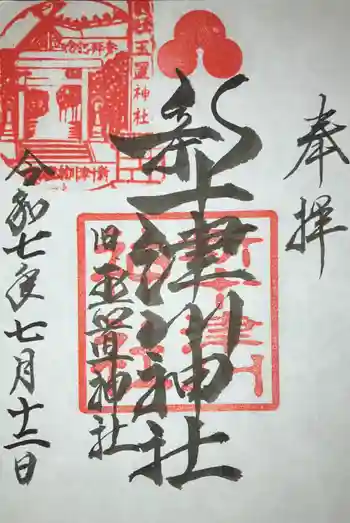 奉拝
新十津川神社
旧玉置神社
令和七年七月十二日
玉置神社